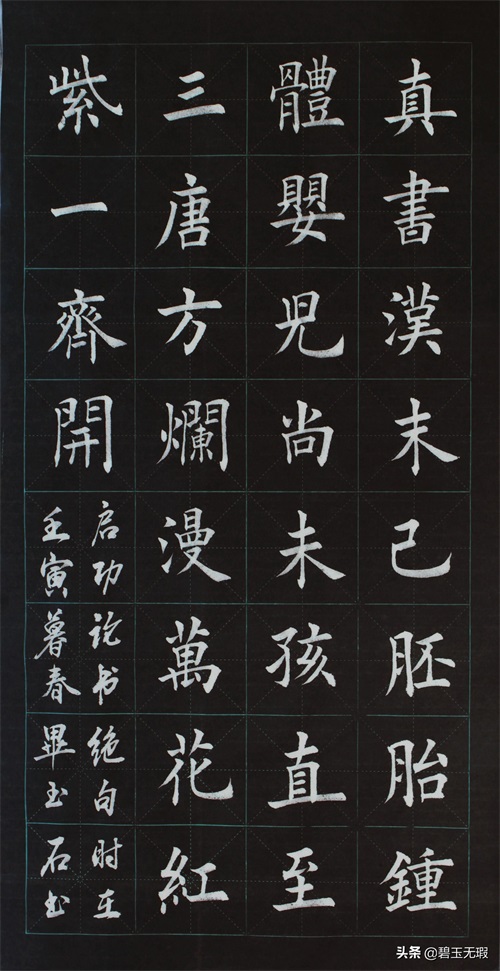 真書漢末已胚胎鍾
體嬰兒尚未孩直至
三唐方爛漫萬花紅
紫一齊開
启功论书绝句时在
壬寅暮春畢玉石书
头条 @碧玉无瑕